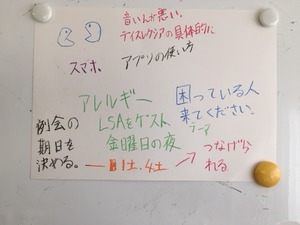 音いんが悪い。
ディスレクシアの具体的に
スマホ アプリの使い方
アレルギー
LSAをゲスト
テーマ
金曜日の夜
困っている人
来てください。
例会の
期日を
決める。
1土、4土
→つなげら
れる